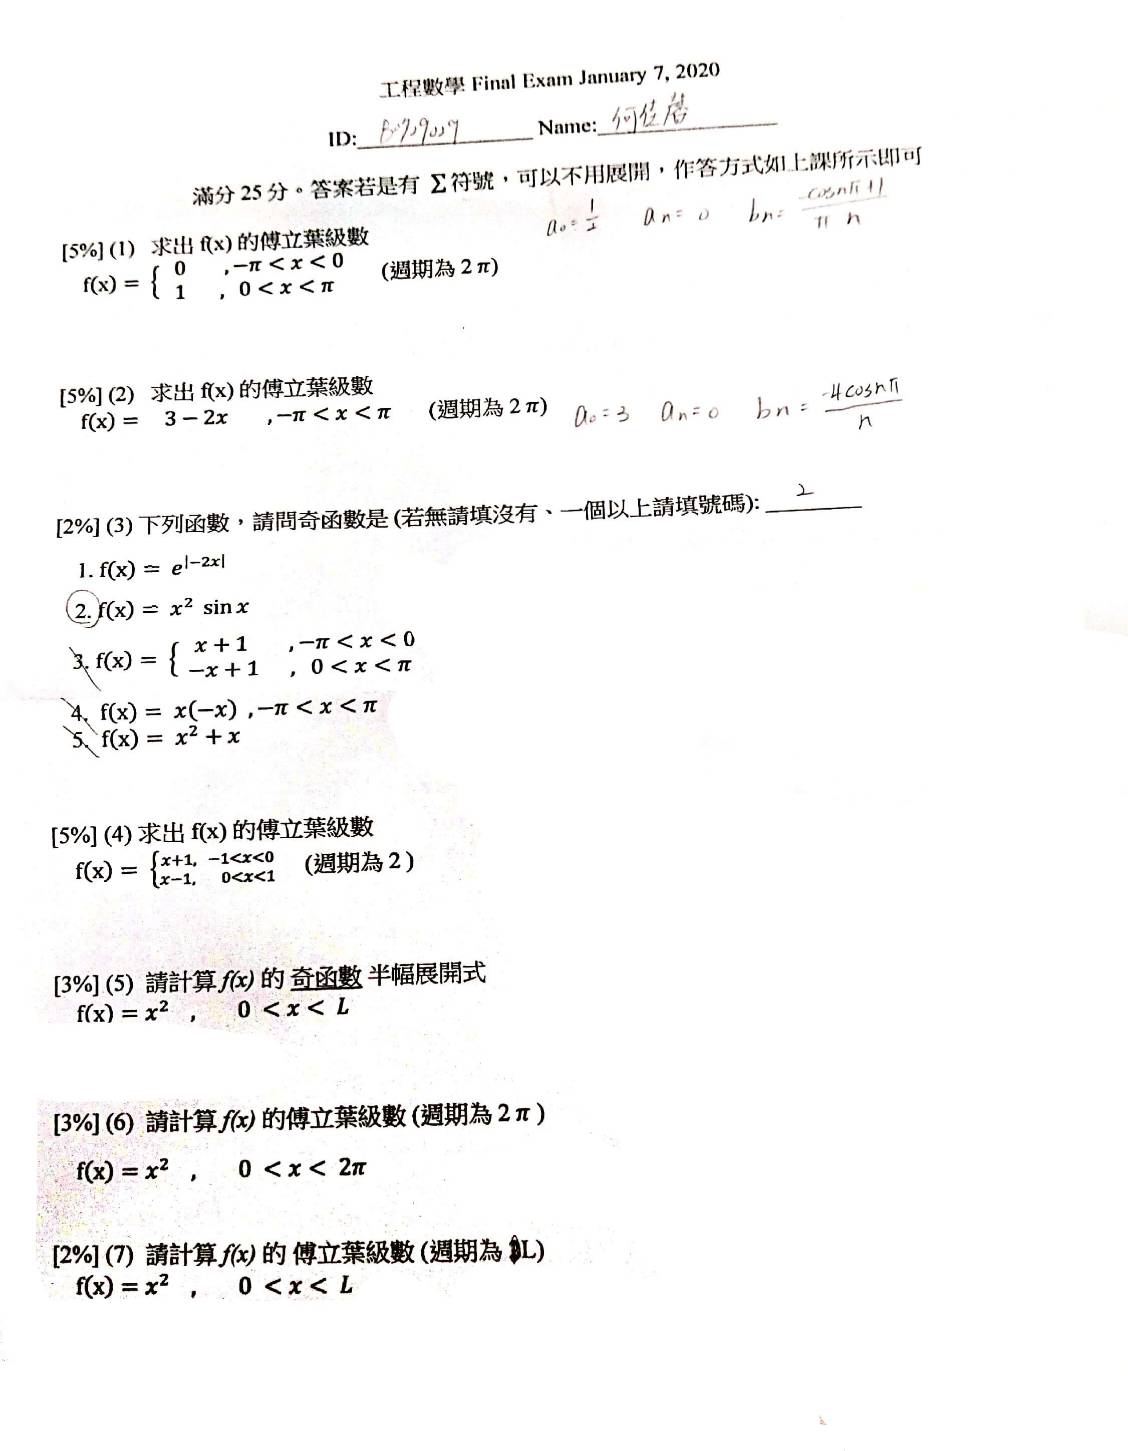 工程數學 Final Exam January 7, 2020
ID: Name: 何佳
滿分 25 分。答案若是有 Σ 符號，可以不用展開，作答方式如上課所示即可
a₀ = 1/2 aₙ = 0 bₙ = -cosnπ+1 / π n
[5%] (1) 求出 f(x) 的傅立葉級數
f(x) = { 0 , −π < x < 0 (週期為 2 π)
1 , 0 < x < π
[5%] (2) 求出 f(x) 的傅立葉級數
f(x) = 3 − 2x , −π < x < π (週期為 2 π) a₀ = 3 aₙ = 0 bₙ = -4cosnπ / n
[2%] (3) 下列函數，請問奇函數是 (若無請填沒有、一個以上請填號碼): 2
1. f(x) = e^|−2x|
2. f(x) = x² sin x
3. f(x) = { x + 1 , −π < x < 0
−x + 1 , 0 < x < π
4. f(x) = x(−x) , −π < x < π
5. f(x) = x² + x
[5%] (4) 求出 f(x) 的傅立葉級數
f(x) = { x+1, −1<x<0 (週期為 2 )
x−1, 0<x<1
[3%] (5) 請計算 f(x) 的 奇函數 半幅展開式
f(x) = x² , 0 < x < L
[3%] (6) 請計算 f(x) 的傅立葉級數 (週期為 2 π )
f(x) = x² , 0 < x < 2π
[2%] (7) 請計算 f(x) 的 傅立葉級數 (週期為 L)
f(x) = x² , 0 < x < L